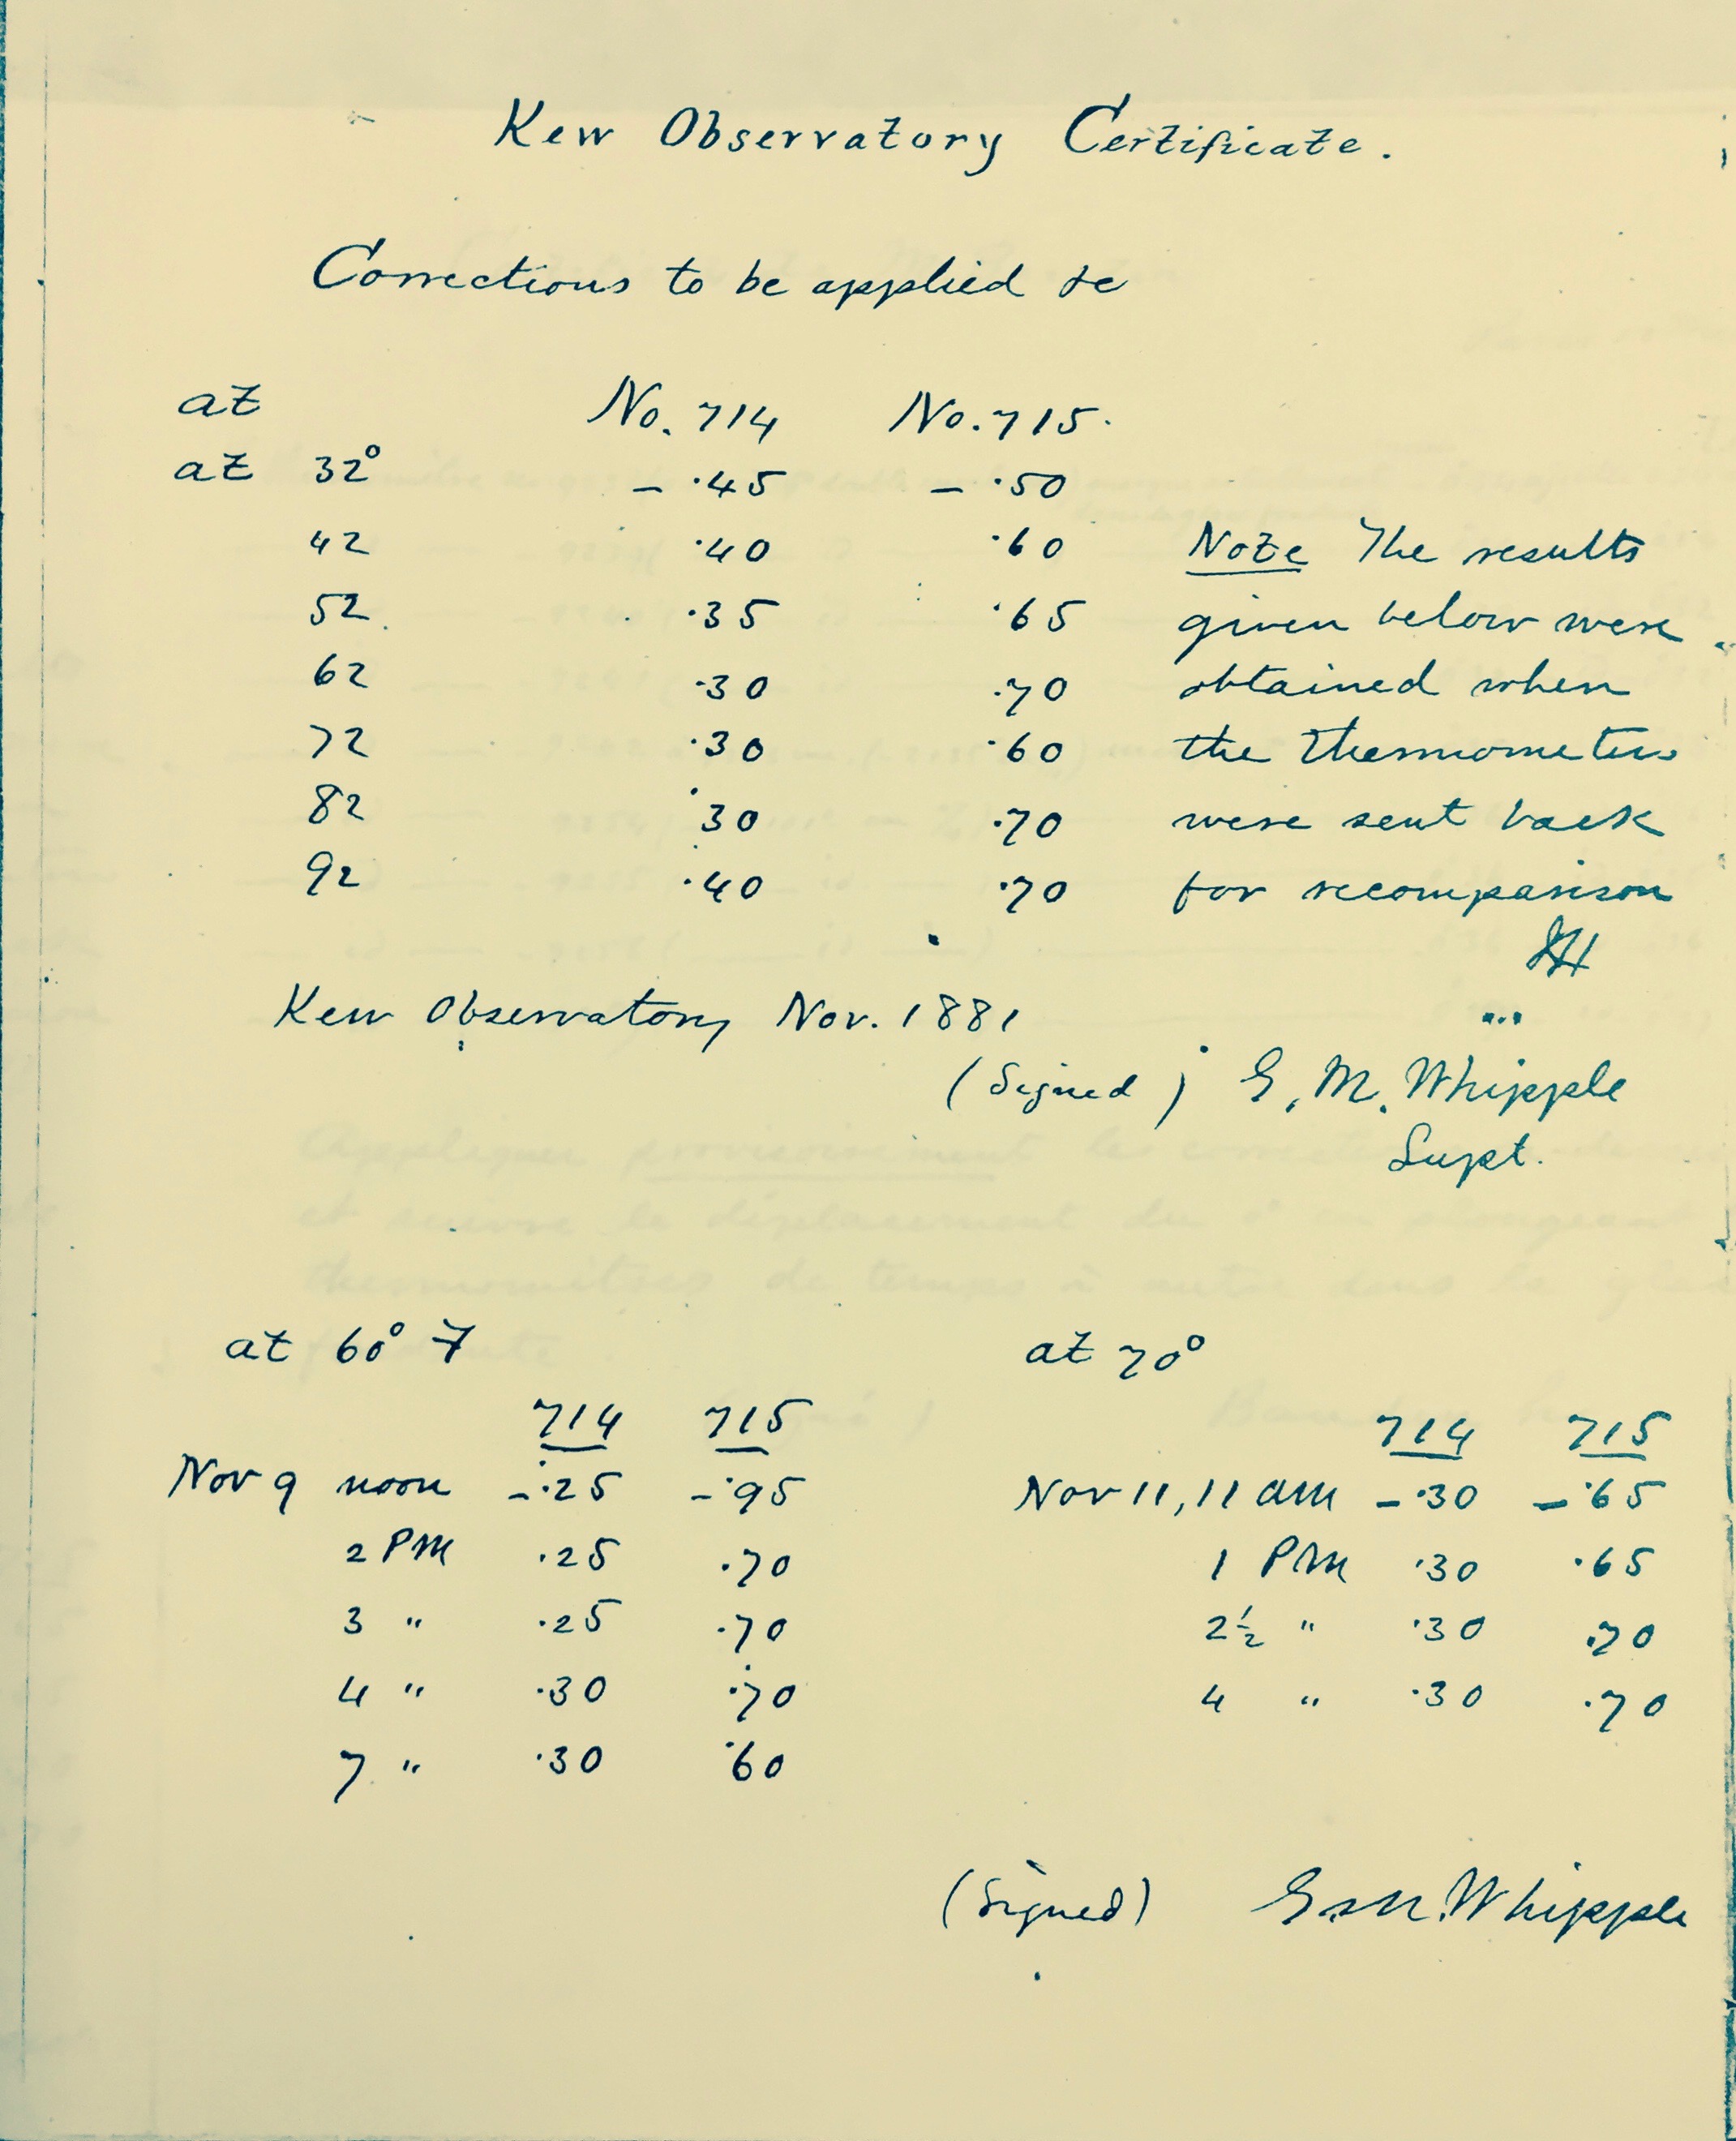 Kew Observatory Certificate.
Corrections to be applied to
at No. 714 No. 715.
at 32° - .45 - .50
42 .40 .60 Note The results
52. .35 .65 given below were
62 .30 .70 obtained when
72 .30 .60 the thermometers
82 .30 .70 were sent back
92 .40 .70 for recomparison
Kew Observatory Nov. 1881
(Signed) G. M. Whipple
Supt.
at 60° F at 70°
714 715 714 715
Nov 9 noon -.25 -.95 Nov 11, 11 am -.30 -.65
2 PM .25 .70 1 PM .30 .65
3 " .25 .70 2½ " .30 .70
4 " .30 .70 4 " .30 .70
7 " .30 .60
(Signed) G. M. Whipple